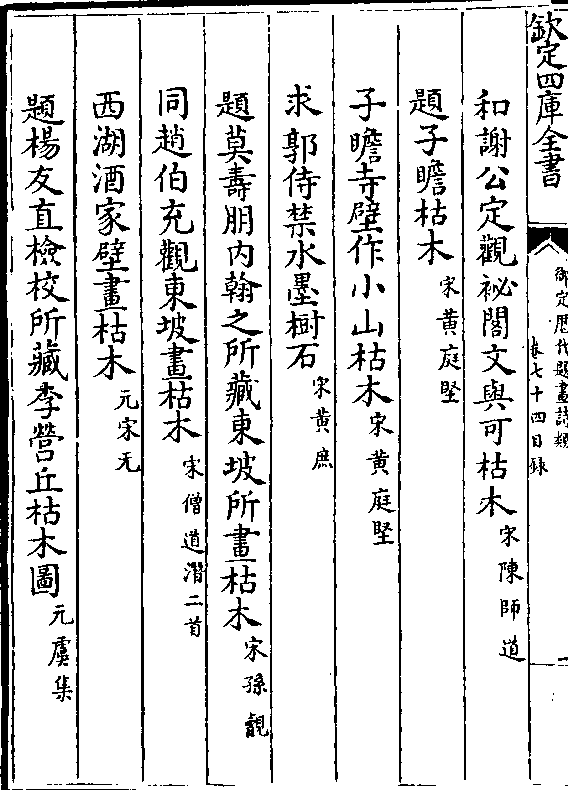 欽定四庫全書
御定歴代題畫詩類
卷七十四目録
和謝公定觀祕閣文與可枯木宋陳師道
題子瞻枯木宋黄庭堅
子瞻寺壁作小山枯木宋黄庭堅
求郭侍禁水墨樹石宋黄庶
題莫壽朋内翰之所藏東坡所畫枯木宋孫覿
同趙伯充觀東坡畫枯木宋僧道潛二首
西湖酒家壁畫枯木元宋无
題楊友直檢校所藏李營丘枯木圖元虞集